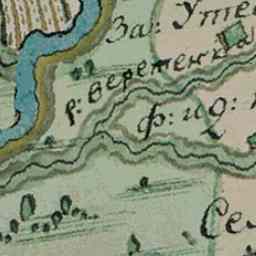 За: Уте
р: веретенка
ф: и д:
Се